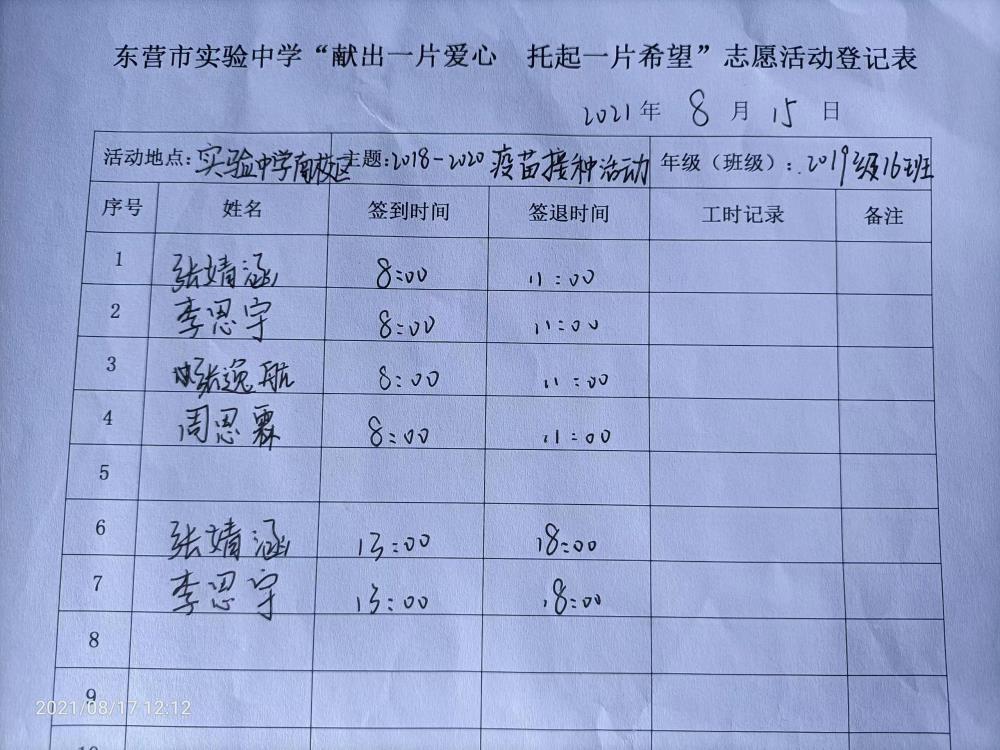 东营市实验中学“献出一片爱心 托起一片希望”志愿活动登记表
2021年 8 月 15 日
活动地点：实验中学南校区 主题：2018-2020疫苗接种活动 年级（班级）：2019级16班
序号 姓名 签到时间 签退时间 工时记录 备注
1 张婧涵 8:00 11:00
2 李思宇 8:00 11:00
3 张逸航 8:00 11:00
4 周思霖 8:00 11:00
5
6 张婧涵 13:00 18:00
7 李思宇 13:00 18:00
8
9
10
2021/08/17 12:12